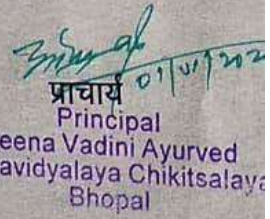 प्राचार्य
Principal
eena Vadini Ayurved
avidyalaya Chikitsalaya
Bhopal